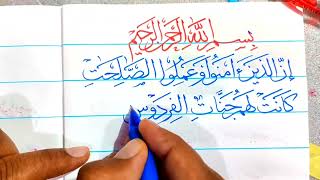 بِسْمِ اللَّهِ الرَّحْمَٰنِ الرَّحِيمِ
إِنَّ الَّذِينَ ءَامَنُوا وَعَمِلُوا الصَّٰلِحَٰتِ
كَانَتْ لَهُمْ جَنَّاتُ الْفِرْدَوْسِ